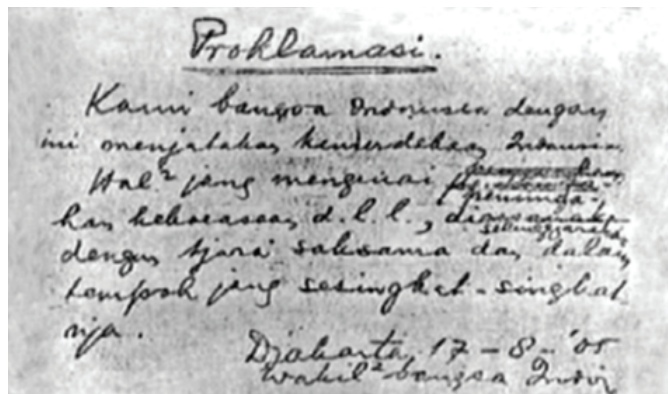 Proklamasi.
Kami bangsa Indonesia dengan
ini menjatakan kemerdekaan Indonesia.
Hal² jang mengenai peminda-
han kekoeasaan d.l.l., diselenggarakan
dengan tjara saksama dan dalam
tempoh jang sesingkat-singkat
nja.
Djakarta, 17 - 8 - '05
Wakil² bangsa